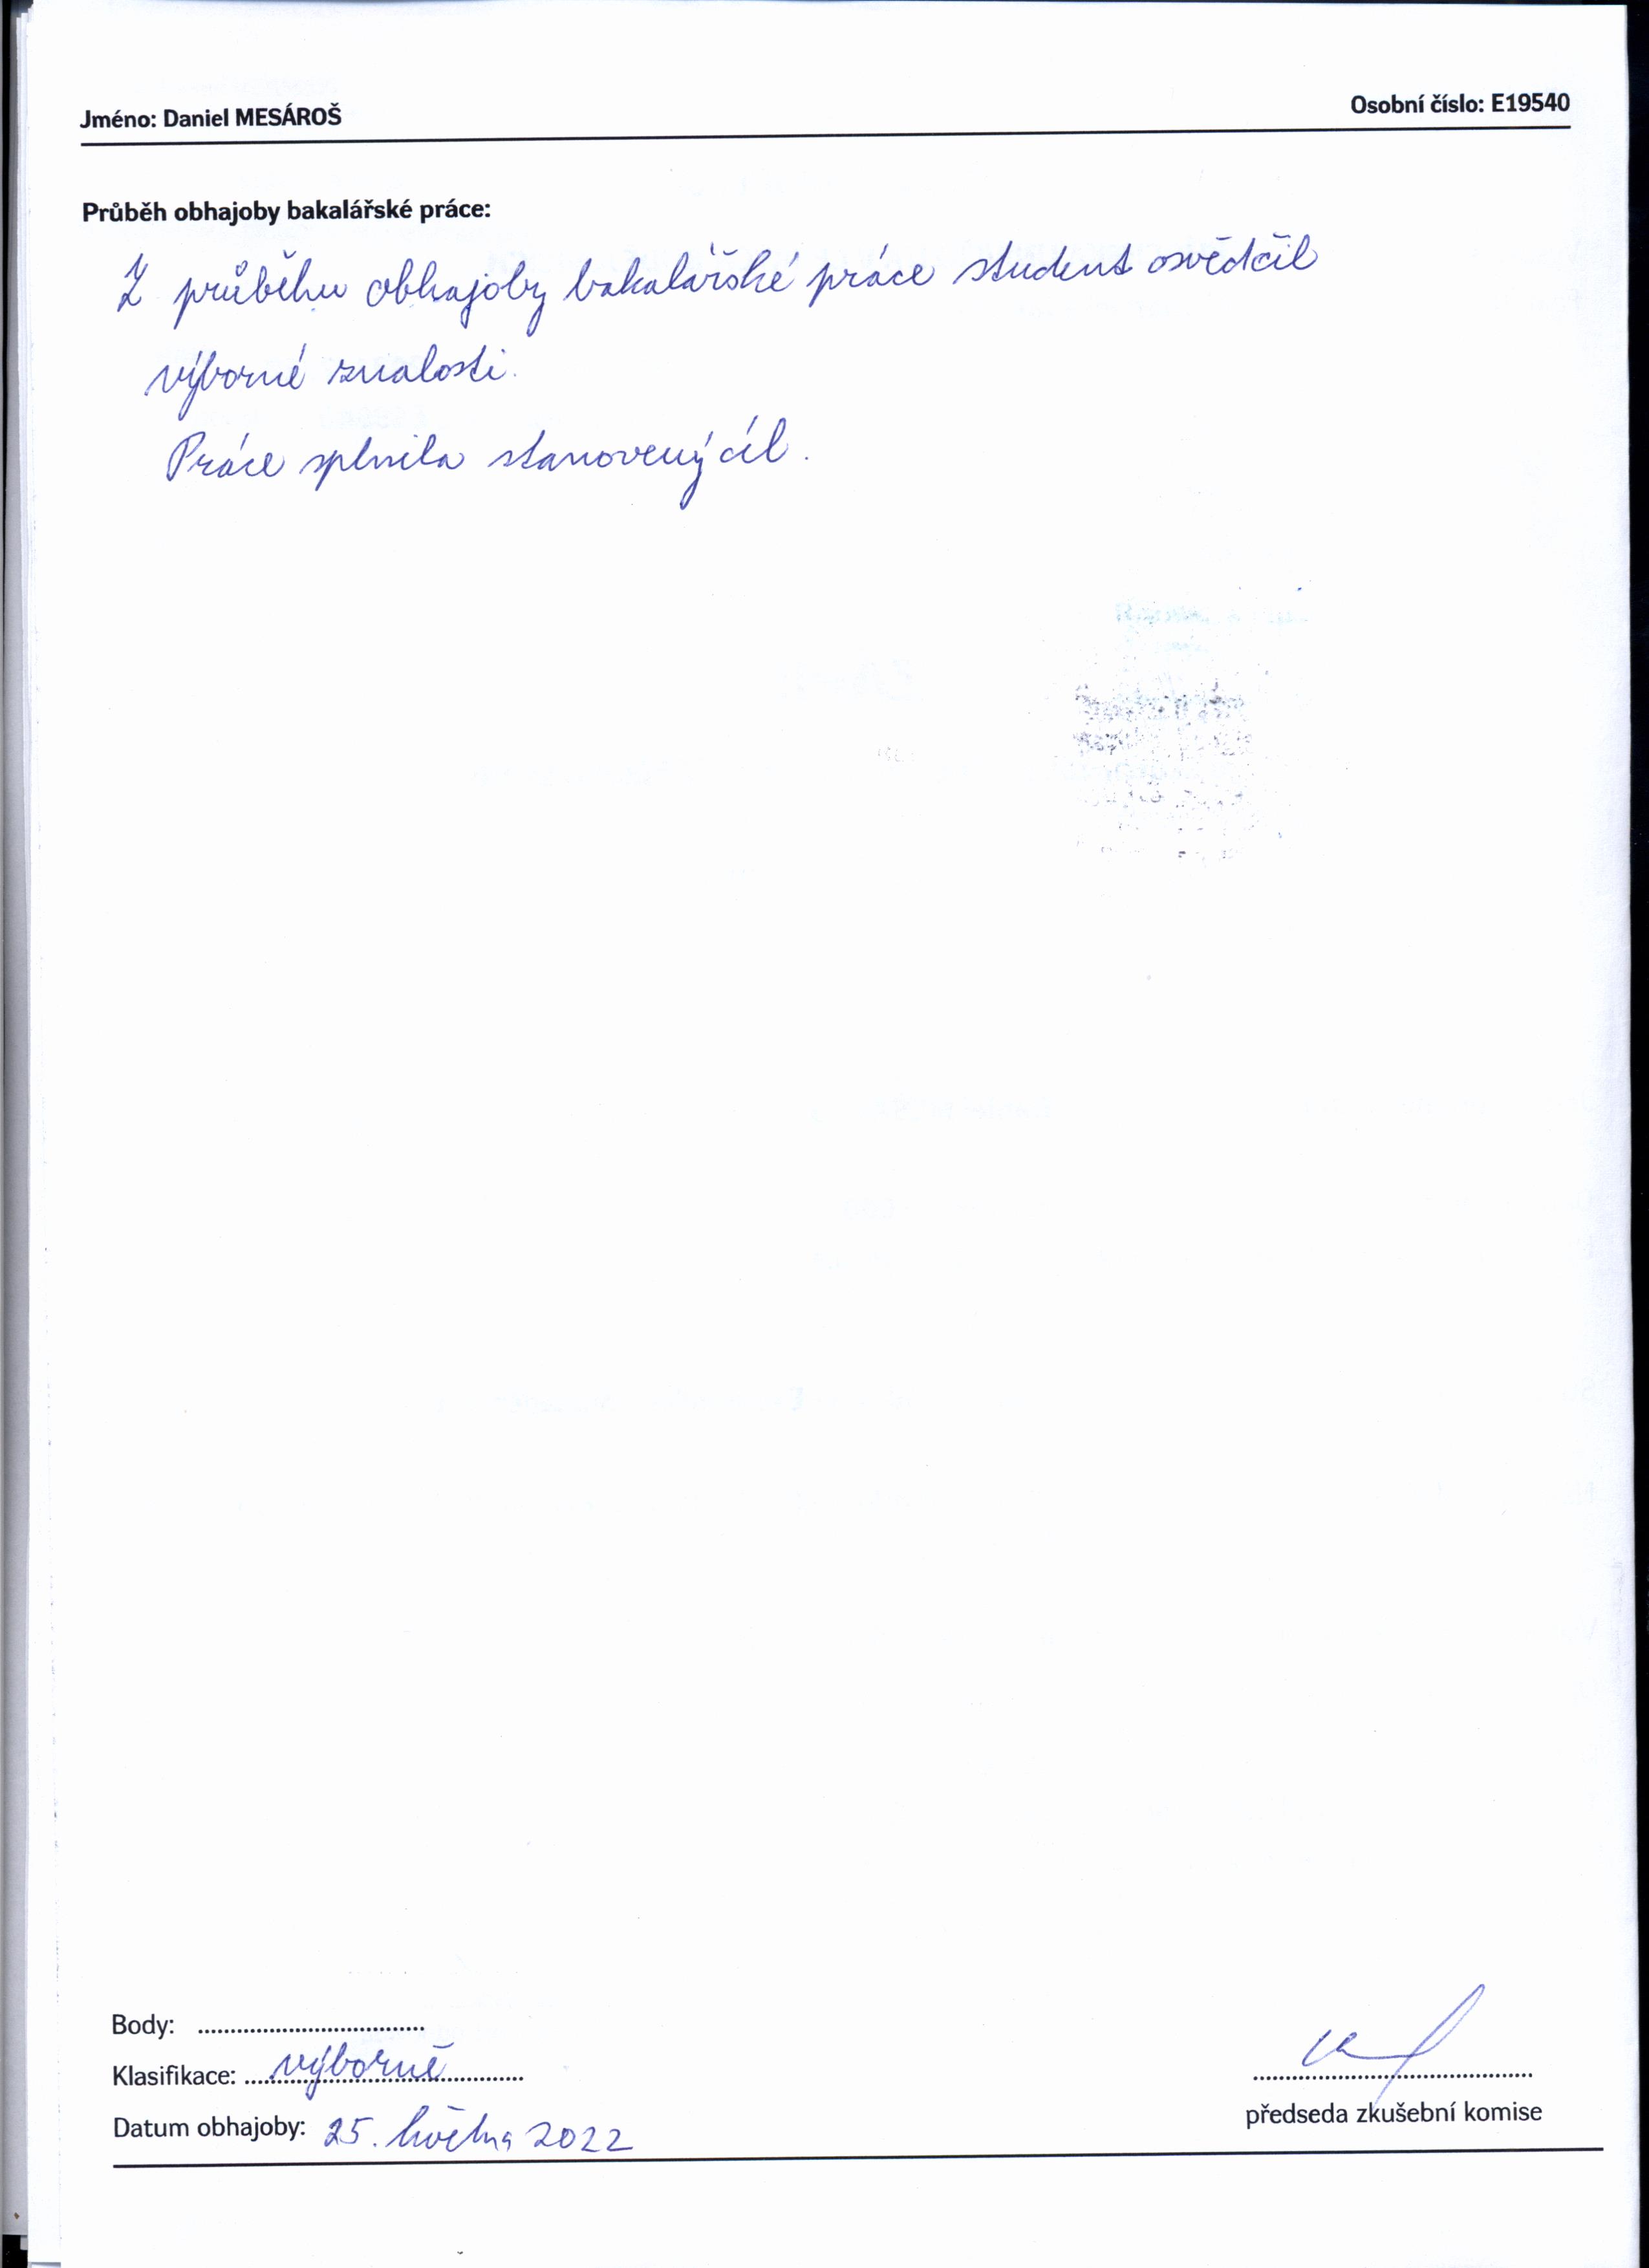 Jméno: Daniel MESÁROŠ Osobní číslo: E19540
Průběh obhajoby bakalářské práce:
Z průběhu obhajoby bakalářské práce student osvědčil
výborné znalosti.
Práce splnila stanovený cíl.
Body: ....................................
Klasifikace: výborně
Datum obhajoby: 25. května 2022
předseda zkušební komise